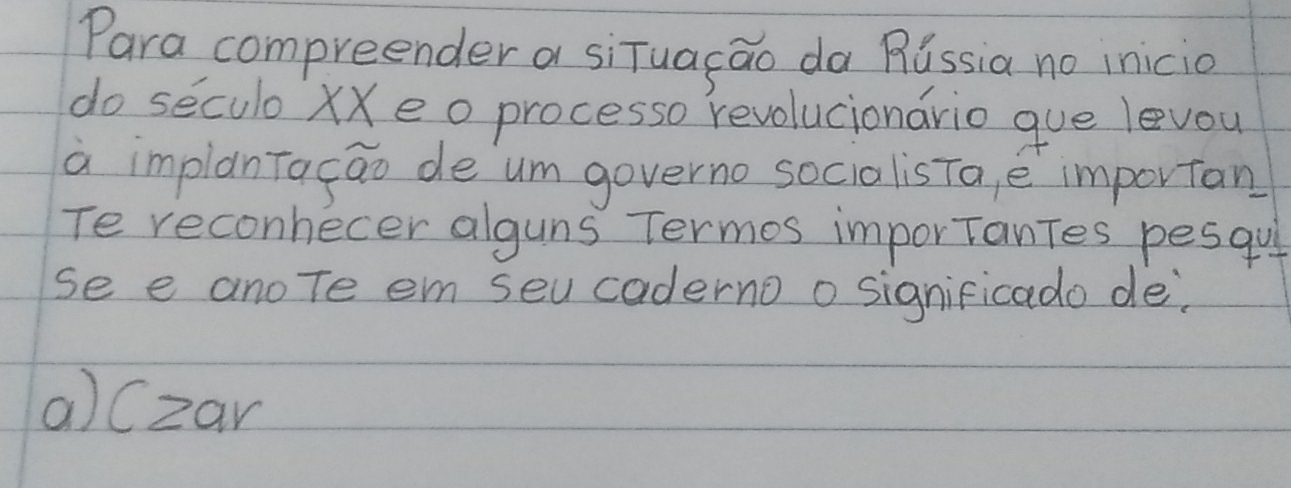 Para compreender a situação da Rússia no inicio
do século XX e o processo revolucionário que levou
à implantação de um governo socialista, é importan
te reconhecer alguns termos importantes pesqui
se e anote em seu caderno o significado de:
a) Czar